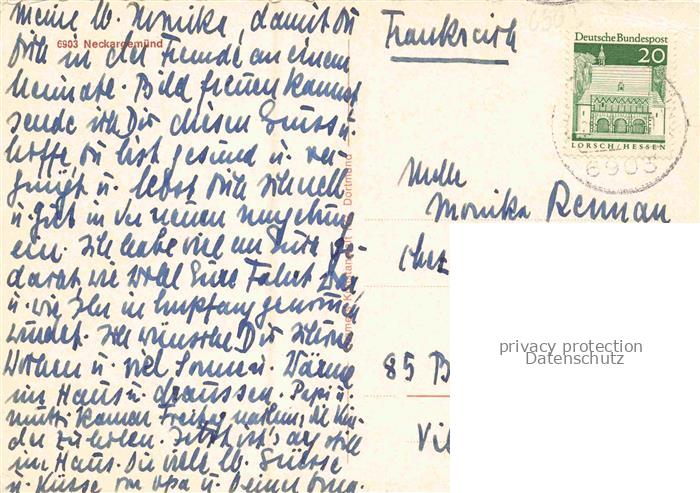 Meine lb. Monika, damit Du
Dich in der Fremde an einem
heimatl. Bild freuen kannst
sende ich Dir diesen Gruss u.
hoffe Du bist gesund u. ver-
gnügt u. lebst Dich schnell
u. gut in der neuen Umgebung
ein. Ich habe viel an Eure ge-
dacht, wie wohl Eure Fahrt war
u. wie Ihr in Empfang genommen
wurdet. Ich wünsche Dir schöne
Wochen u. viel Sonne u. Wärme
im Haus u. draussen. Papi u.
Mutti kamen Freitag nachm. die Kin-
der zu holen. Jetzt ist's arg still
im Haus. Dir viele lb. Grüsse
u. Küsse von Opa u. Deiner Oma.
6903 Neckargemünd
Dortmund
Frankreich
Deutsche Bundespost
20
LORSCH/HESSEN
6903
Mlle
Monika Rennau
chez
85 B
Vil
privacy protection
Datenschutz